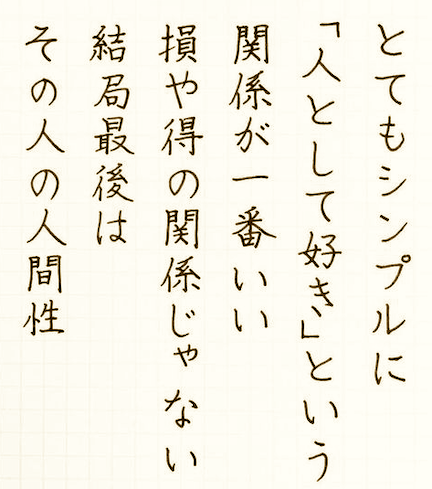 とてもシンプルに
「人として好き」という
関係が一番いい
損や得の関係じゃない
結局最後は
その人の人間性